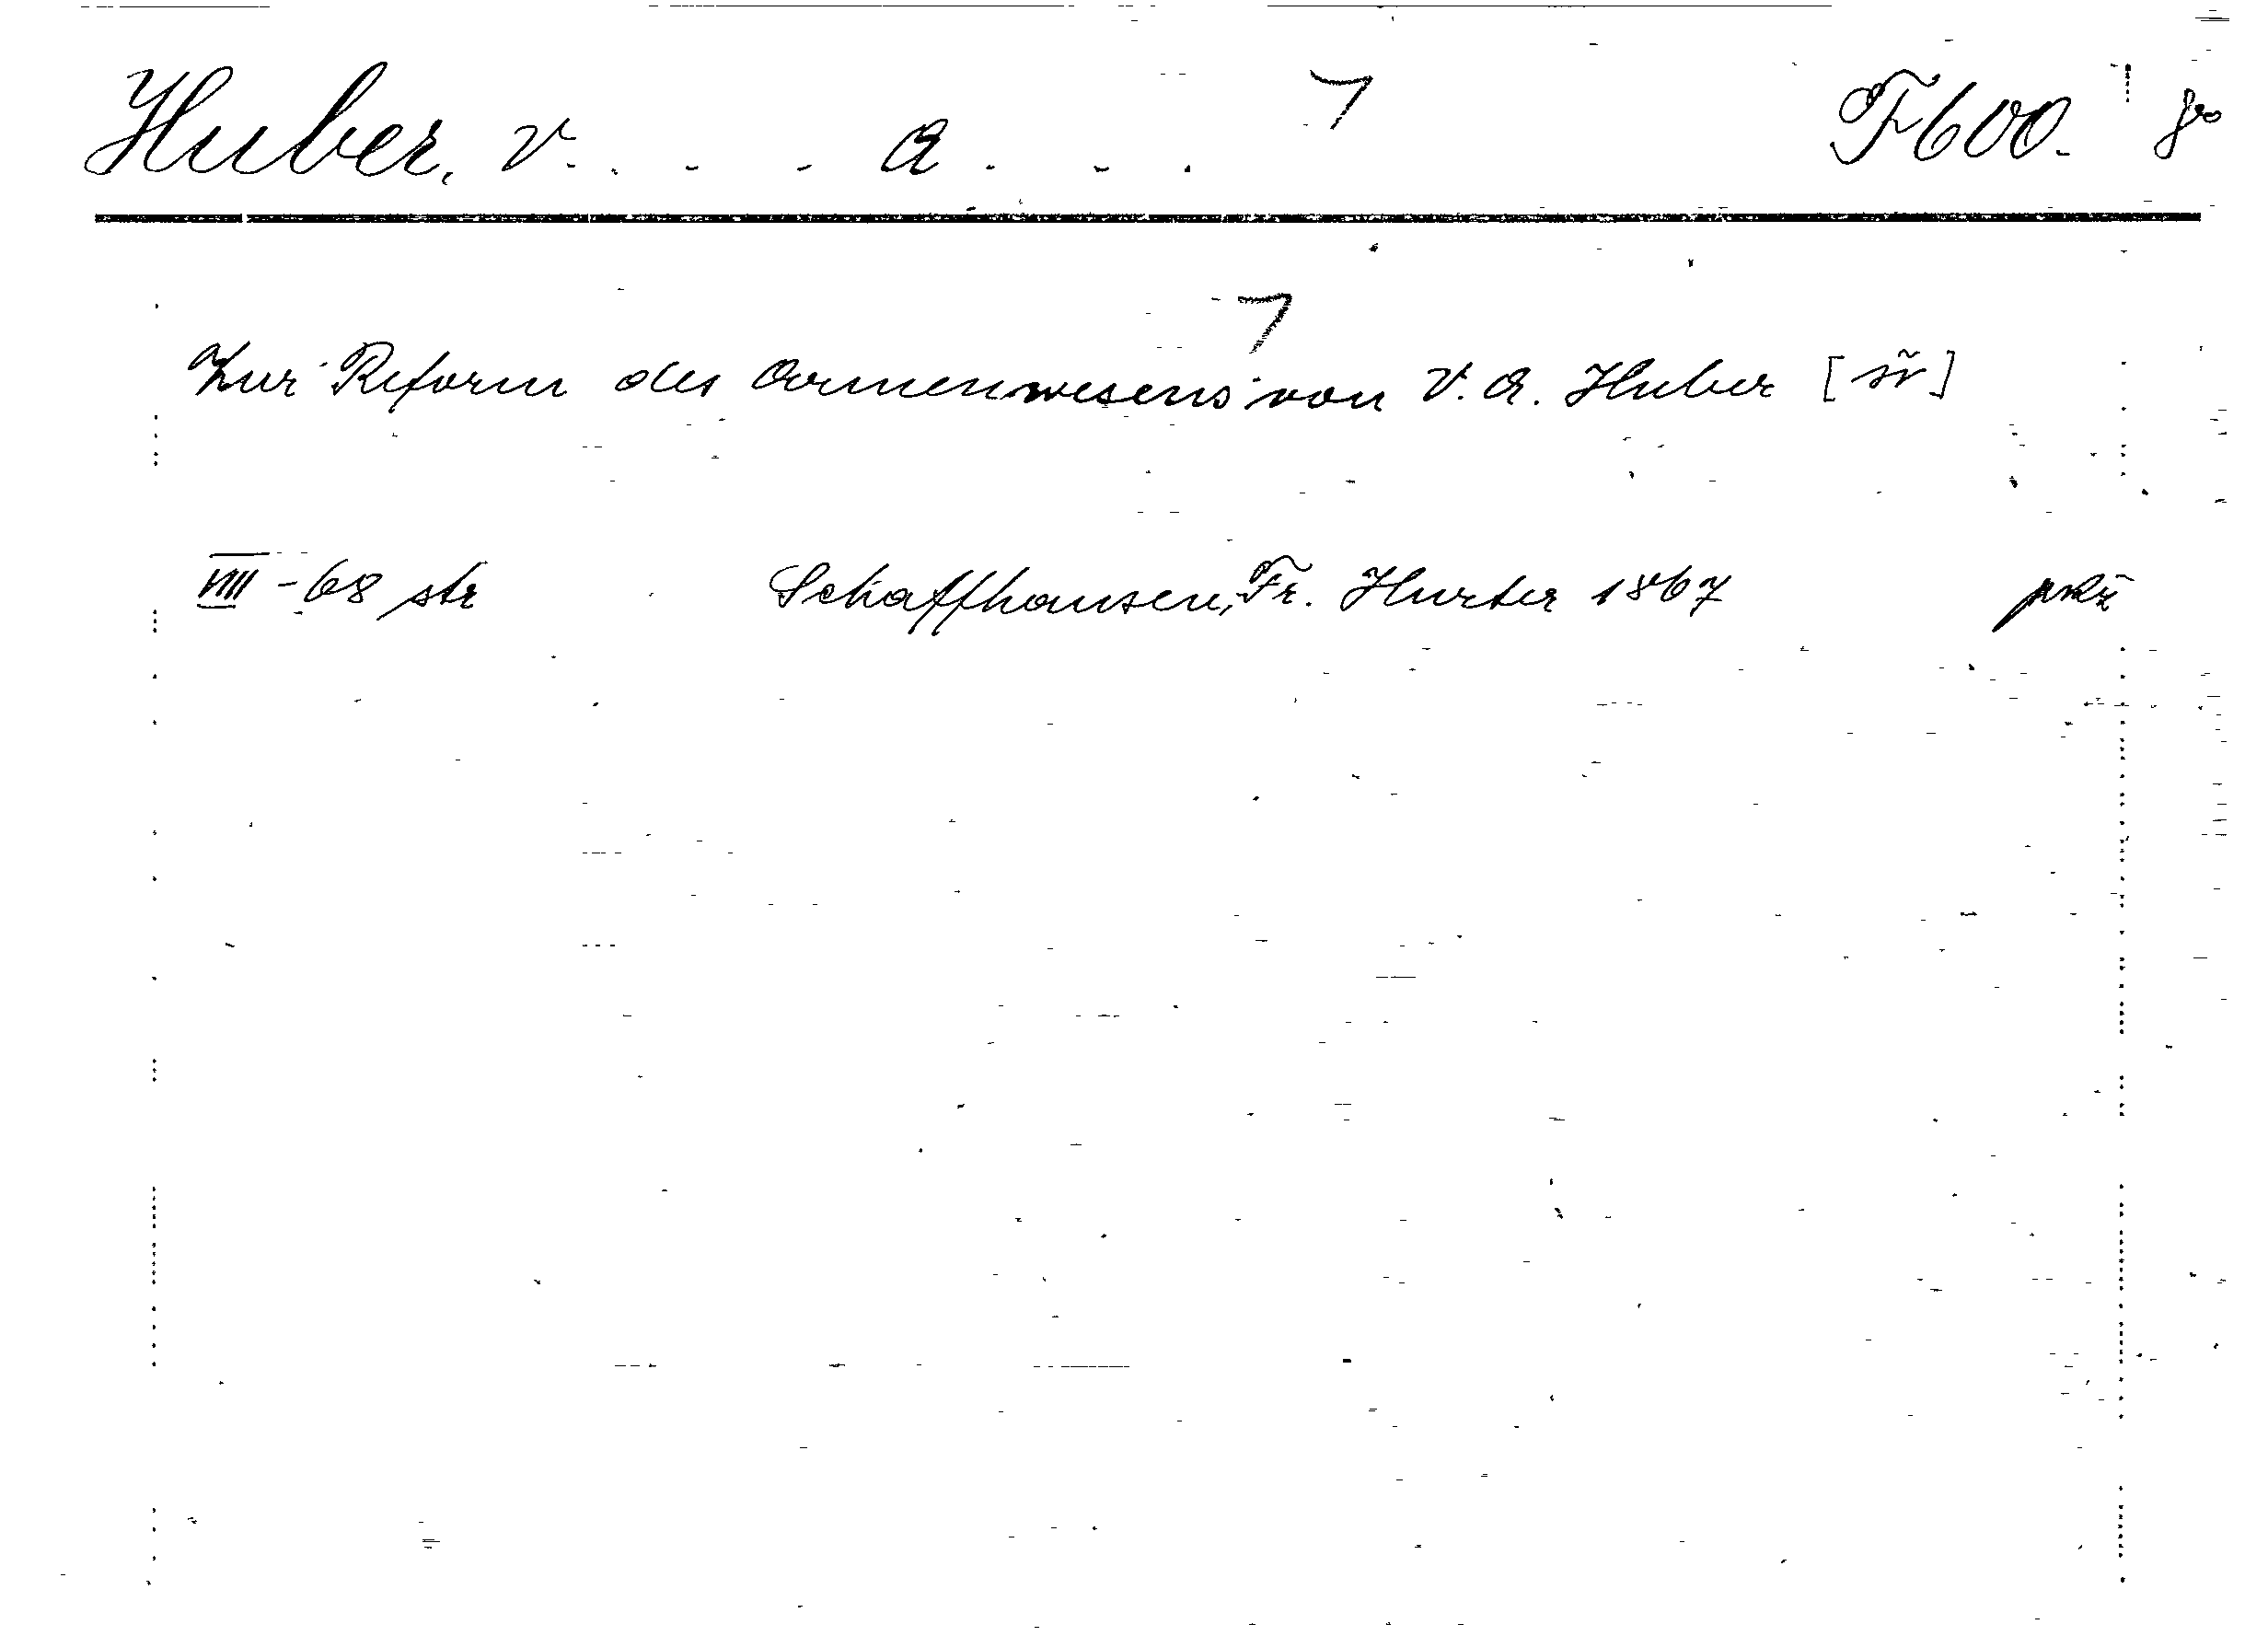 Huber, V. . . . A. . . . F600. 8°
Zur Reform des Armenwesens von V. A. Huber
VIII - 68 str Schaffhausen, Fr. Hurter 1867